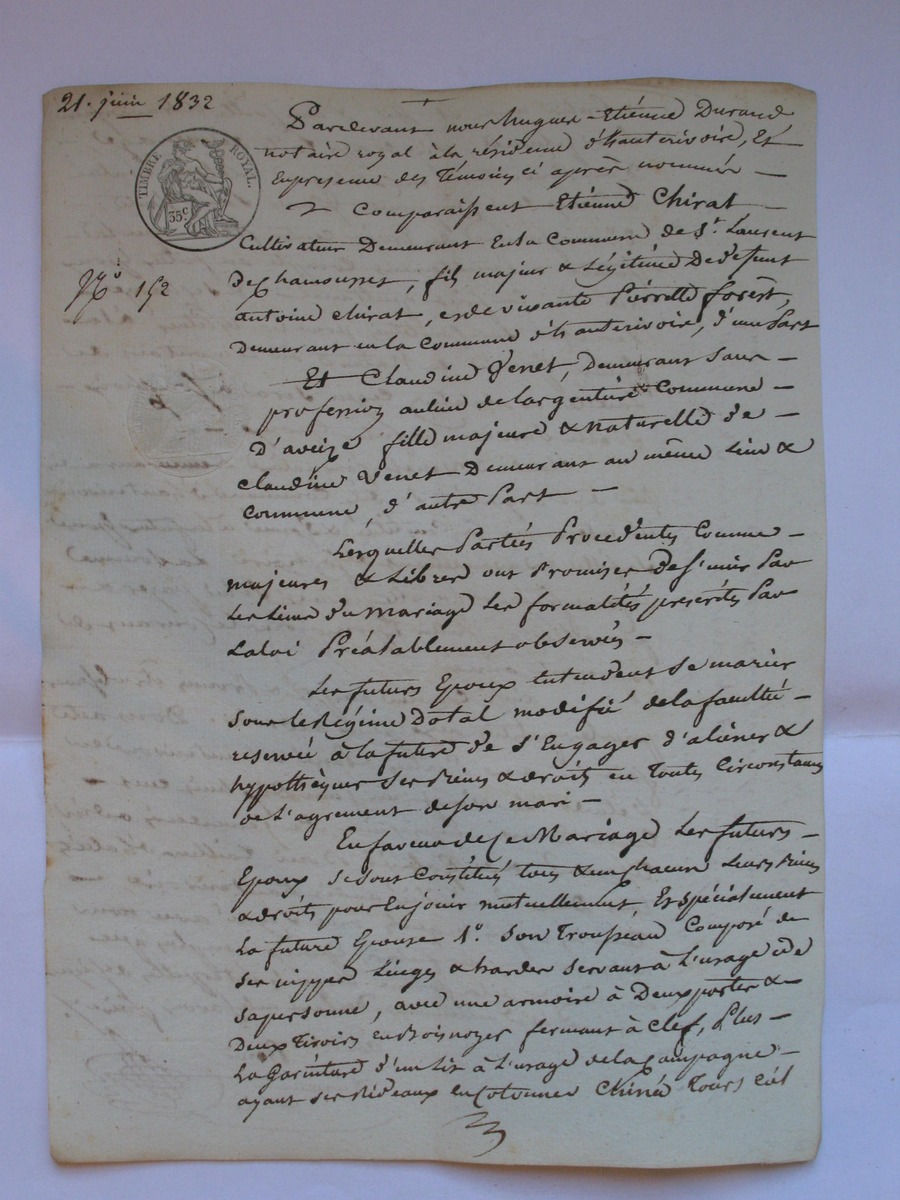 21. juin 1832
TIMBRE ROYAL.
35.c
No 152
Pardevant nous hugues-Etienne Durand
notaire royal à la résidence d'hauterivoire, Et
En présence des Témoins ci après nommés —
Comparaissent Etienne Chirat —
Cultivateur Demeurant En la Commune de St. Laurent
de Chamousset, fils majeur & légitime de défunt
antoine chirat, & de vivante Pierrette forest,
demeurant en la Commune d'hauterivoire, d'une Part
Et Claudine Venet, Demeurant sans —
profession au lieu de largentière Commune —
D'aveize fille majeure & naturelle de —
Claudine Venet Demeurant au même Lieu &
Commune, d'autre Part —
Lesquelles Parties Procédentes Comme —
majeures & Libres ont Promises de s'unir Par
Les Liens du mariage Les formalités prescrites Par
La loi Préalablement observées —
Les futurs Epoux Entendent se marier
sous le Régime Dotal modifié de la faculté —
reservée à la future de s'Engager d'aliéner &
hypothèquer ses Biens & droits en Toutes Circonstances
de L'agrément de son mari —
En faveur de Ce Mariage Les futurs —
Epoux se sont Constitués tous & un chacun Leurs Biens
& droits pour En jouir mutuellement Et spécialement
La future Epouse 1o. son Trousseau Composé de
ses nippes Linges & hardes servant à L'usage de
sa personne, avec une armoire à Deux portes &
Deux Tiroirs en Bois noyer fermant à Clef, Plus —
La Garniture d'un Lit à L'usage de la Campagne —
ayant ses Rideaux en Cotonne Chinée Tours Ciel